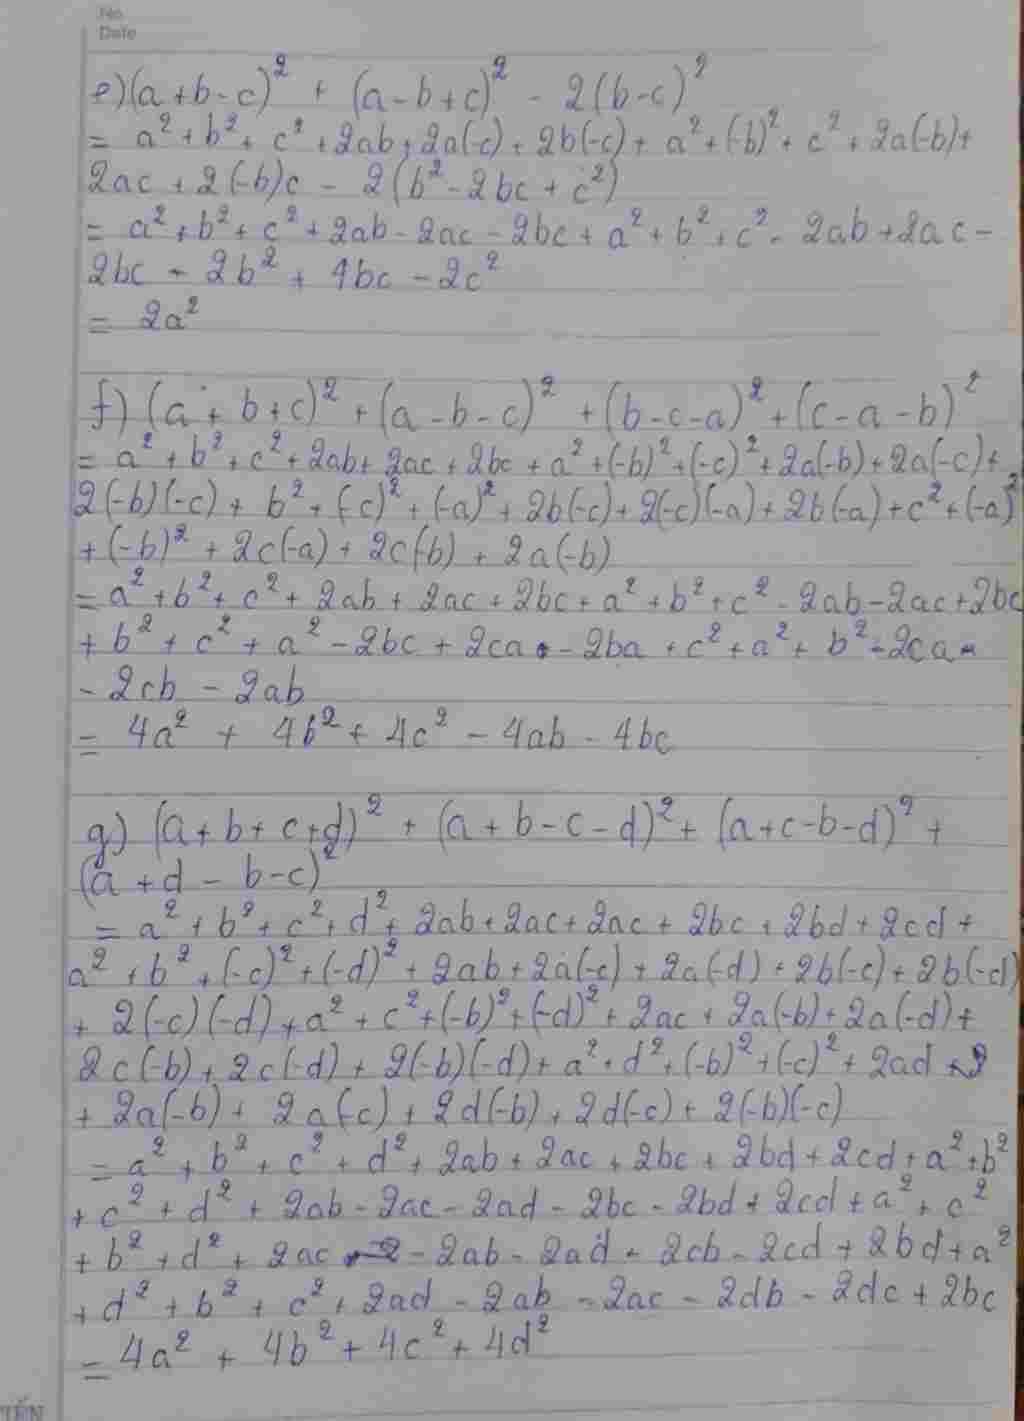 No.
Date
e) (a+b-c)² + (a-b+c)² - 2(b-c)²
= a² + b² + c² + 2ab + 2a(-c) + 2b(-c) + a² + (-b)² + c² + 2a(-b) +
2ac + 2(-b)c - 2(b² - 2bc + c²)
= a² + b² + c² + 2ab - 2ac - 2bc + a² + b² + c² - 2ab + 2ac -
2bc - 2b² + 4bc - 2c²
= 2a²
f) (a + b + c)² + (a - b - c)² + (b - c - a)² + (c - a - b)²
= a² + b² + c² + 2ab + 2ac + 2bc + a² + (-b)² + (-c)² + 2a(-b) + 2a(-c) +
2(-b)(-c) + b² + (-c)² + (-a)² + 2b(-c) + 2(-c)(-a) + 2b(-a) + c² + (-a)²
+ (-b)² + 2c(-a) + 2c(-b) + 2a(-b)
= a² + b² + c² + 2ab + 2ac + 2bc + a² + b² + c² - 2ab - 2ac + 2bc
+ b² + c² + a² - 2bc + 2ca - 2ba + c² + a² + b² - 2ca -
- 2cb - 2ab
= 4a² + 4b² + 4c² - 4ab - 4bc
g) (a + b + c + d)² + (a + b - c - d)² + (a + c - b - d)² +
(a + d - b - c)²
= a² + b² + c² + d² + 2ab + 2ac + 2ac + 2bc + 2bd + 2cd +
a² + b² + (-c)² + (-d)² + 2ab + 2a(-c) + 2a(-d) + 2b(-c) + 2b(-d)
+ 2(-c)(-d) + a² + c² + (-b)² + (-d)² + 2ac + 2a(-b) + 2a(-d) +
2c(-b) + 2c(-d) + 2(-b)(-d) + a² + d² + (-b)² + (-c)² + 2ad
+ 2a(-b) + 2a(-c) + 2d(-b) + 2d(-c) + 2(-b)(-c)
= a² + b² + c² + d² + 2ab + 2ac + 2bc + 2bd + 2cd + a² + b²
+ c² + d² + 2ab - 2ac - 2ad - 2bc - 2bd + 2cd + a² + c²
+ b² + d² + 2ac - 2ab - 2ad - 2cb - 2cd + 2bd + a²
+ d² + b² + c² + 2ad - 2ab - 2ac - 2db - 2dc + 2bc
= 4a² + 4b² + 4c² + 4d²
TIẾN